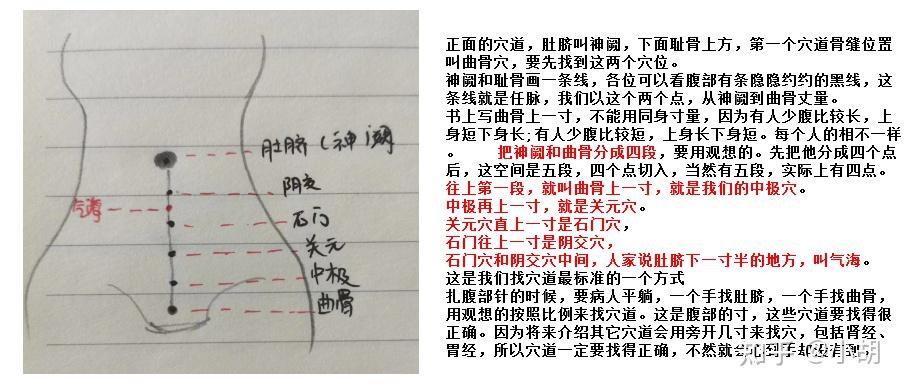 肚脐（神阙
阴交
气海
石门
关元
中极
曲骨
正面的穴道，肚脐叫神阙，下面耻骨上方，第一个穴道骨缝位置
叫曲骨穴，要先找到这两个穴位。
神阙和耻骨画一条线，各位可以看腹部有条隐隐约约的黑线，这
条线就是任脉，我们以这个两个点，从神阙到曲骨丈量。
书上写曲骨上一寸，不能用同身寸量，因为有人少腹比较长，上
身短下身长;有人少腹比较短，上身长下身短。每个人的相不一样
。 把神阙和曲骨分成四段，要用观想的。先把他分成四个点
后，这空间是五段，四个点切入，当然有五段，实际上有四点。
往上第一段，就叫曲骨上一寸，就是我们的中极穴。
中极再上一寸，就是关元穴。
关元穴直上一寸是石门穴，
石门往上一寸是阴交穴，
石门穴和阴交穴中间，人家说肚脐下一寸半的地方，叫气海。
这是我们找穴道最标准的一个方式
扎腹部针的时候，要病人平躺，一个手找肚脐，一个手找曲骨，
用观想的按照比例来找穴道。这是腹部的寸，这些穴道要找得很
正确。因为将来介绍其它穴道会用旁开几寸来找穴，包括肾经、
胃经，所以穴道一定要找得正确，不然就会
知乎 @小胡